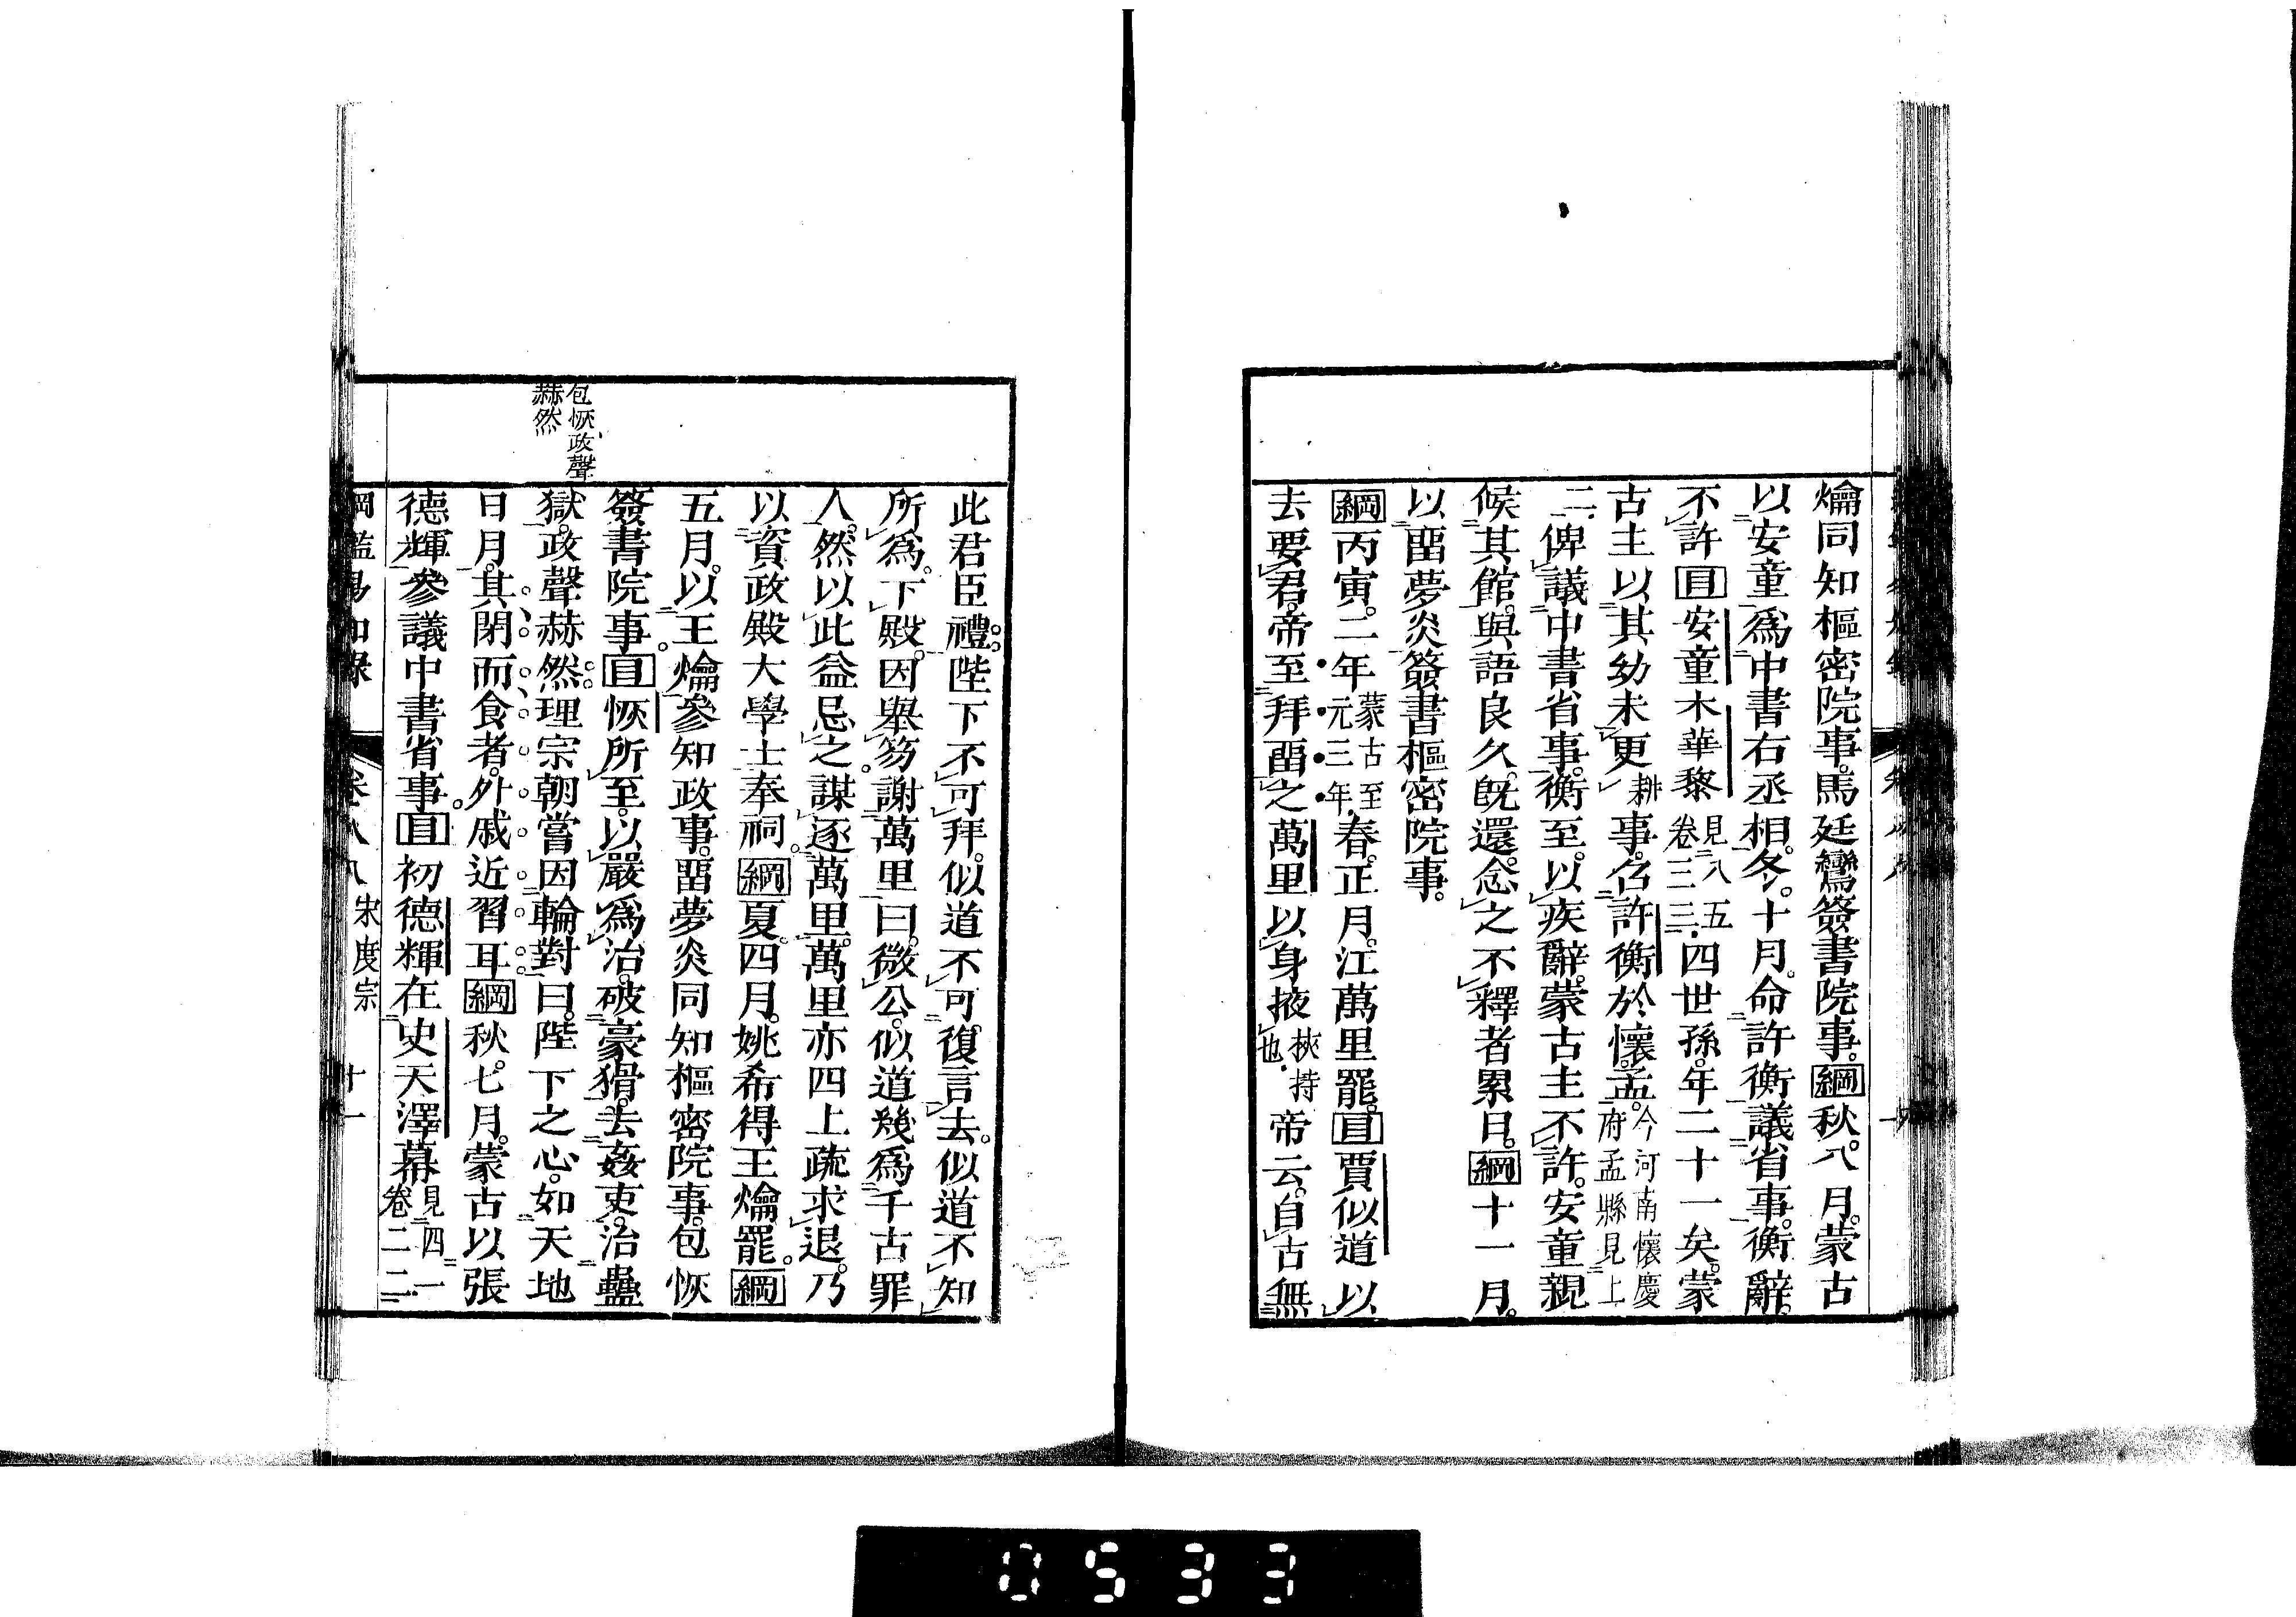 爚同知樞密院事。馬廷鸞簽書院事。綱秋。八月。蒙古
以安童爲中書右丞相。冬。十月。命許衡議省事。衡辭。
不許目安童木華黎見八五卷三三四世孫。年二十一矣。蒙
古主以其幼未更耕事。召許衡於懷。孟。今河南懷慶府孟縣見上
二。俾議中書省事。衡至。以疾辭。蒙古主不許。安童親
候其館。與語良久。既還。念之不釋者累日。綱十一月。
以畱夢炎簽書樞密院事。
綱丙寅。二年蒙古至元三年春。正月。江萬里罷。目賈似道以
去要君。帝至拜畱之萬里以身掖挾持也帝云。自古無
此君臣禮。陛下不可拜。似道不可復言去。似道不知
所爲。下殿。因舉笏謝萬里曰。微公。似道幾爲千古罪
人。然以此益忌之。謀逐萬里。萬里亦四上疏求退。乃
以資政殿大學士奉祠。綱夏。四月。姚希得王爚罷。綱
五月。以王爚參知政事。畱夢炎同知樞密院事。包恢
簽書院事。目恢所至。以嚴爲治。破豪猾。去姦吏。治蠱
獄。政聲赫然。理宗朝嘗因輪對曰。陛下之心。如天地
日月。其閉而食者。外戚近習耳。綱秋。七月。蒙古以張
德輝參議中書省事。目初德輝在史天澤幕見四一卷二二
包恢政聲
赫然
綱鑑易知錄 卷八八 宋度宗 十一
0533